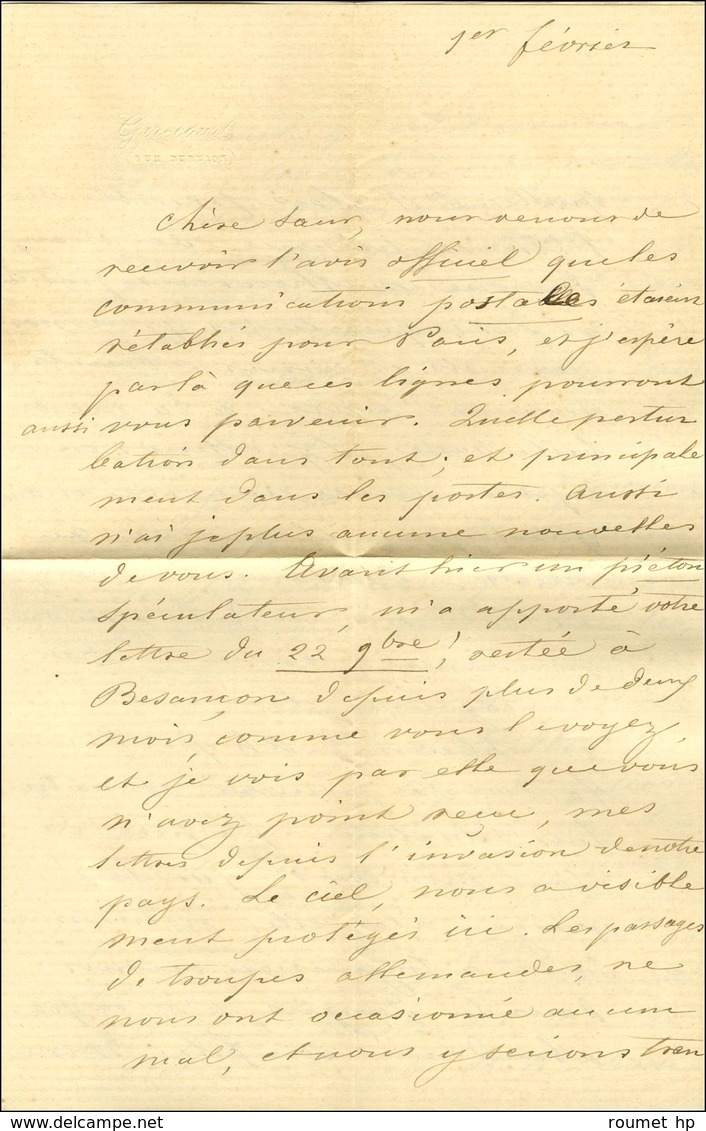 1er février
Chère sœur, nous venons de
recevoir l'avis officiel que les
communications postales étaient
rétablies pour Paris, et j'espère
par là que ces lignes pourront
aussi vous parvenir. Quelle pertur
bation dans tout; et principale
ment dans les postes. Aussi
n'ai je plus aucune nouvelles
de vous. Avant hier un piéton
spéculateur, m'a apporté votre
lettre du 22 9bre! restée à
Besançon depuis plus de deux
mois, comme vous le voyez,
et je vois par elle que vous
n'avez point reçu, mes
lettres depuis l'invasion de notre
pays. Le ciel, nous a visible
ment protégés ici. Les passages
de troupes allemandes, ne
nous ont occasionné aucun
mal, et nous y serions tran
roumet hp